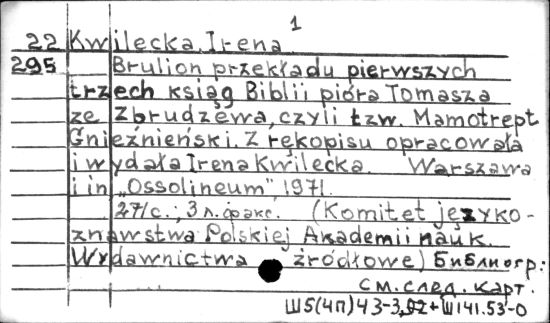 1
22 Kwilecka, Irena
295 Brulion przekładu pierwszych
trzech ksiąg Biblii pióra Tomasza
ze Zbrudzewa, czyli tzw. Mamotrept
Gnieźnieński. Z rękopisu opracowała
i wydała Irena Kwilecka. Warszawa
i in. „Ossolineum", 1971.
271 с.; 3 л. факс. (Komitet języko-
znawstwa Polskiej Akademii nauk.
Wydawnictwa źródłowe) Библиогр:
см. след. карт.
Ш5(4П)43-3,02+Ш141.53-0